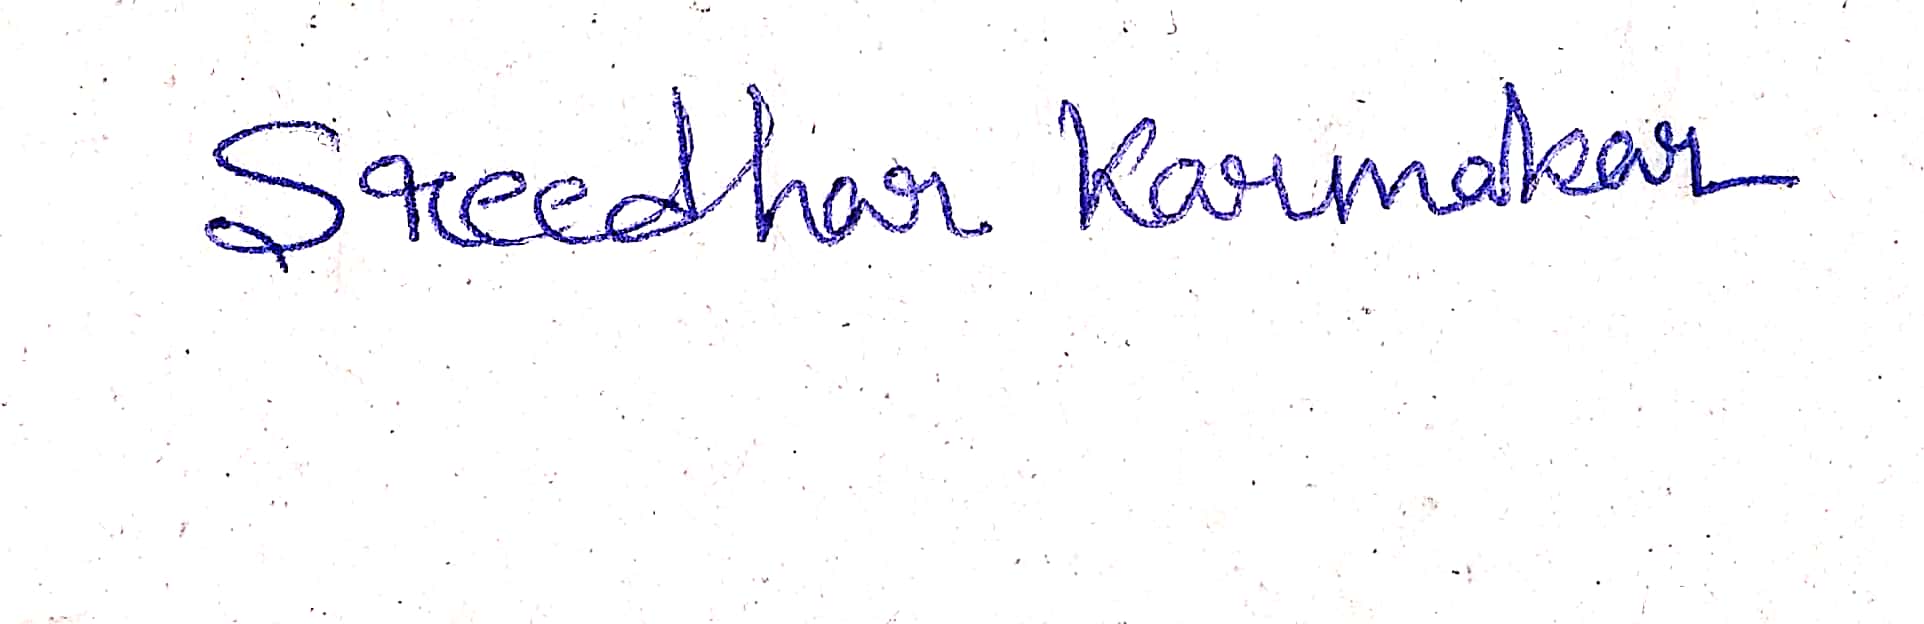 Sreedhar Karmakar